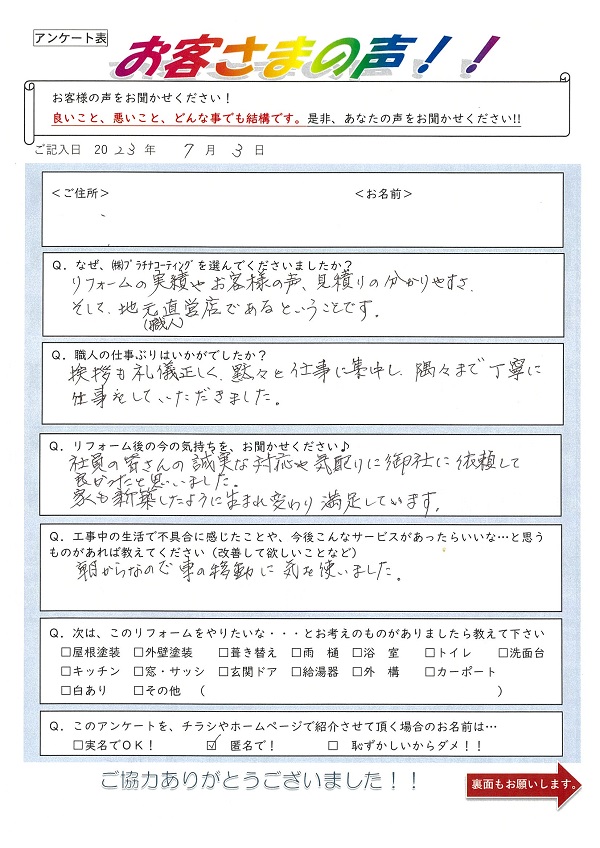 アンケート表
お客さまの声！！
お客様の声をお聞かせください！
良いこと、悪いこと、どんな事でも結構です。是非、あなたの声をお聞かせください!!
ご記入日 2023年 7月 3日
＜ご住所＞ ＜お名前＞
Q．なぜ、㈱ﾌﾟﾗﾁﾅｺｰﾃｨﾝｸﾞを選んでくださいましたか？
リフォームの実績やお客様の声、見積りの分かりやすさ、
そして、地元直営店であるということです。
(職人)
Q．職人の仕事ぶりはいかがでしたか？
挨拶も礼儀正しく、黙々と仕事に集中し、隅々まで丁寧に
仕事をしていただきました。
Q．リフォーム後の今の気持ちを、お聞かせください♪
社員の皆さんの誠実な対応や気配りに御社に依頼して
良かったと思いました。
家も新築したように生まれ変わり満足しています。
Q．工事中の生活で不具合に感じたことや、今後こんなサービスがあったらいいな…と思う
ものがあれば教えてください（改善して欲しいことなど）
朝からなので車の移動に気を使いました。
Q．次は、このリフォームをやりたいな・・・とお考えのものがありましたら教えて下さい
□屋根塗装 □外壁塗装 □葺き替え □雨 樋 □浴 室 □トイレ □洗面台
□キッチン □窓・サッシ □玄関ドア □給湯器 □外 構 □カーポート
□白あり □その他 （ ）
Q．このアンケートを、チラシやホームページで紹介させて頂く場合のお名前は…
□実名でOK！ ☑ 匿名で！ □ 恥ずかしいからダメ！！
ご協力ありがとうございました！！
裏面もお願いします。